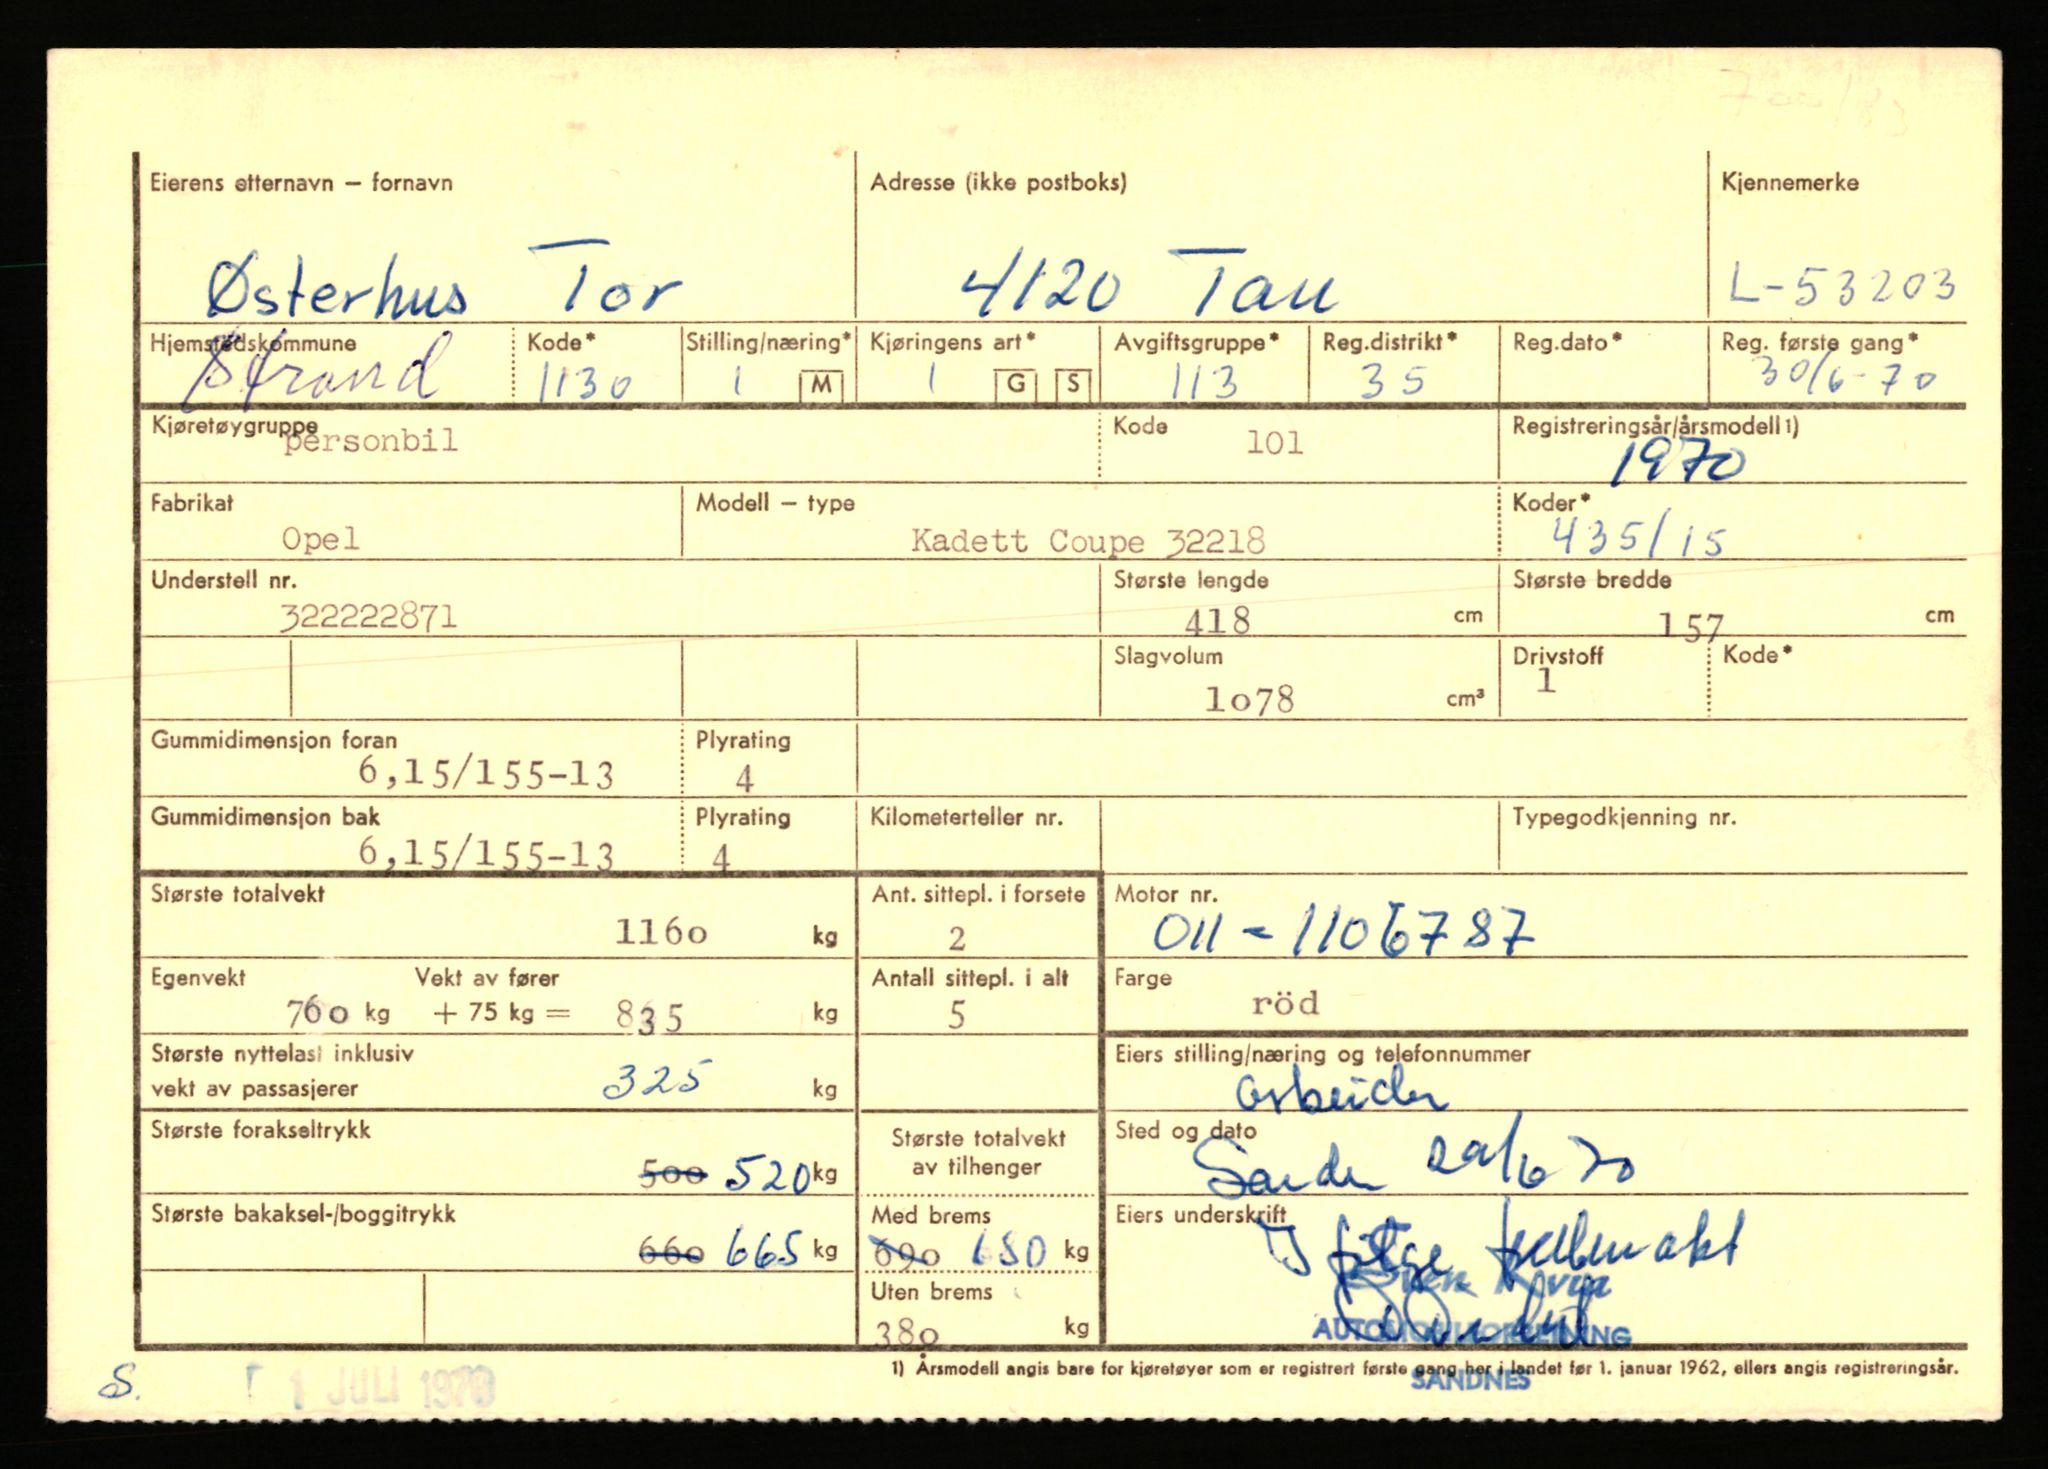 Eierens etternavn – fornavn Adresse (ikke postboks) Kjennemerke
Østerhus Tor 4120 Tau L-53203
Hjemstedskommune Kode* Stilling/næring* Kjøringens art* Avgiftsgruppe* Reg.distrikt* Reg.dato* Reg. første gang*
Strand 1130 1 M 1 G S 113 35 30/6-70
Kjøretøygruppe Kode Registreringsår/årsmodell 1)
personbil 101 1970
Fabrikat Modell – type Koder*
Opel Kadett Coupe 32218 435/15
Understell nr. Største lengde Største bredde
322222871 418 cm 157 cm
Slagvolum Drivstoff Kode*
1o78 cm³ 1
Gummidimensjon foran Plyrating
6,15/155-13 4
Gummidimensjon bak Plyrating Kilometerteller nr. Typegodkjenning nr.
6,15/155-13 4
Største totalvekt Ant. sittepl. i forsete Motor nr.
116o kg 2 011-1106787
Egenvekt Vekt av fører Antall sittepl. i alt Farge
76o kg + 75 kg = 835 kg 5 röd
Største nyttelast inklusiv Eiers stilling/næring og telefonnummer
vekt av passasjerer 325 kg arbeider
Største forakseltrykk Største totalvekt Sted og dato
av tilhenger
5oo 520 kg 6 70
Største bakaksel-/boggitrykk Med brems Eiers underskrift
66o 665 kg 69o 650 kg
I følge fullmakt
Uten brems
38o kg
AUTOMOBILFORRETNING
SANDNES
1) Årsmodell angis bare for kjøretøyer som er registrert første gang her i landet før 1. januar 1962, ellers angis registreringsår.
S. 1 JULI 1970